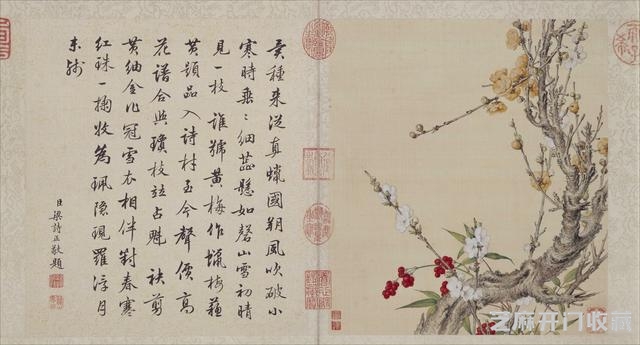 種來從真蠟國朔風吹破小
寒時垂〻細蕊懸如磬山雪初晴
見一枝 誰號黃梅作蠟梅蘇
黃題品入詩材至今聲價高
花譜合與瓊枝竝占魁 袂剪
黃紬金作冠雪衣相伴對春寒
紅珠一掬收為珮隱現羅浮月
未殘
臣梁詩正敬題
芝麻开门收藏